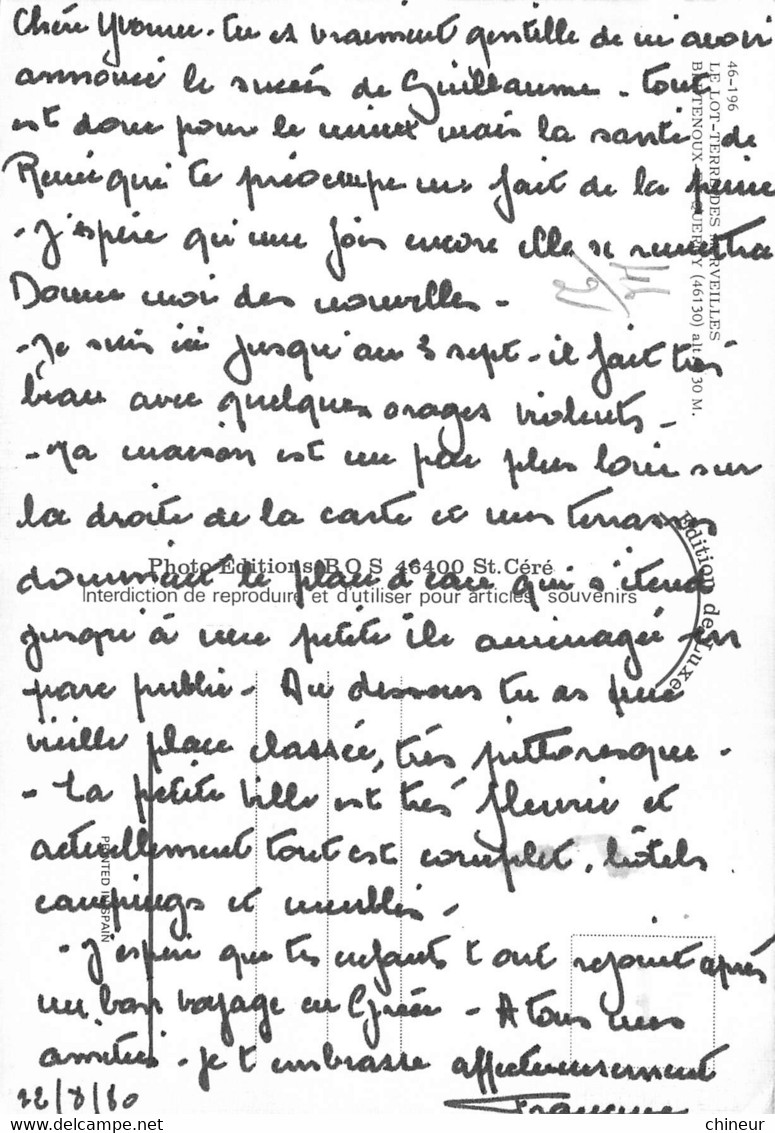 Chère Yvonne. tu es vraiment gentille de m'avoir
annoncé le succès de Guillaume - tout
est donc pour le mieux mais la santé de
René qui te préoccupe me fait de la peine
- J'espère qu'une fois encore elle se remettra
Donne moi des nouvelles -
- Je suis ici jusqu'au 3 sept - il fait très
beau avec quelques orages violents -
- Ma maison est un peu plus loin sur
la droite de la carte et mes terrasses
dominent le plan d'eau qui s'étend
jusqu'à une petite île aménagée en
parc public - Au dessous tu as une
vieille place classée, très pittoresque -
- La petite ville est très fleurie et
actuellement tout est complet, hôtels
campings et meublés -
- J'espère que tes enfants t'ont rejoint après
un bon voyage en Grèce - A tous mes
amitiés - je t'embrasse affectueusement
Francine
22/8/80
46-196
LE LOT-TERRE DES MERVEILLES
BRETENOUX - QUERCY (46130) alt. 130 M.
Edition de Luxe
Photo Editions BOS 46400 St. Céré
Interdiction de reproduire et d'utiliser pour articles souvenirs
PRINTED IN SPAIN
chineur